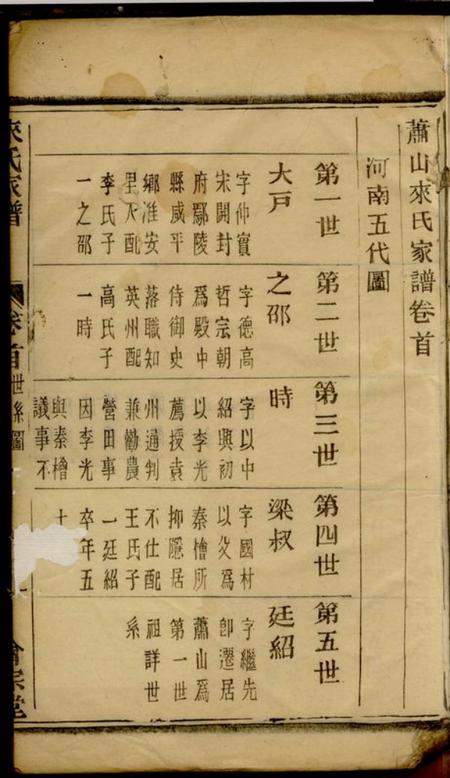 蕭山來氏家譜卷首
河南五代圖
第一世
大戸
字仲實
宋開封
府鄢陵
縣咸平
鄉淮安
里人配
李氏子
一之邵
第二世
之邵
字德高
哲宗朝
爲殿中
侍御史
落職知
英州配
高氏子
一時
第三世
時
字以中
紹興初
以李光
薦授袁
州通判
兼勸農
營田事
因李光
與秦檜
議事不
第四世
梁叔
字國材
以父爲
秦檜所
抑隱居
不仕配
王氏子
一廷紹
卒年五
十
第五世
廷紹
字繼先
卽遷居
蕭山爲
第一世
祖詳世
系
來氏家譜
卷首
世系圖
會宗堂